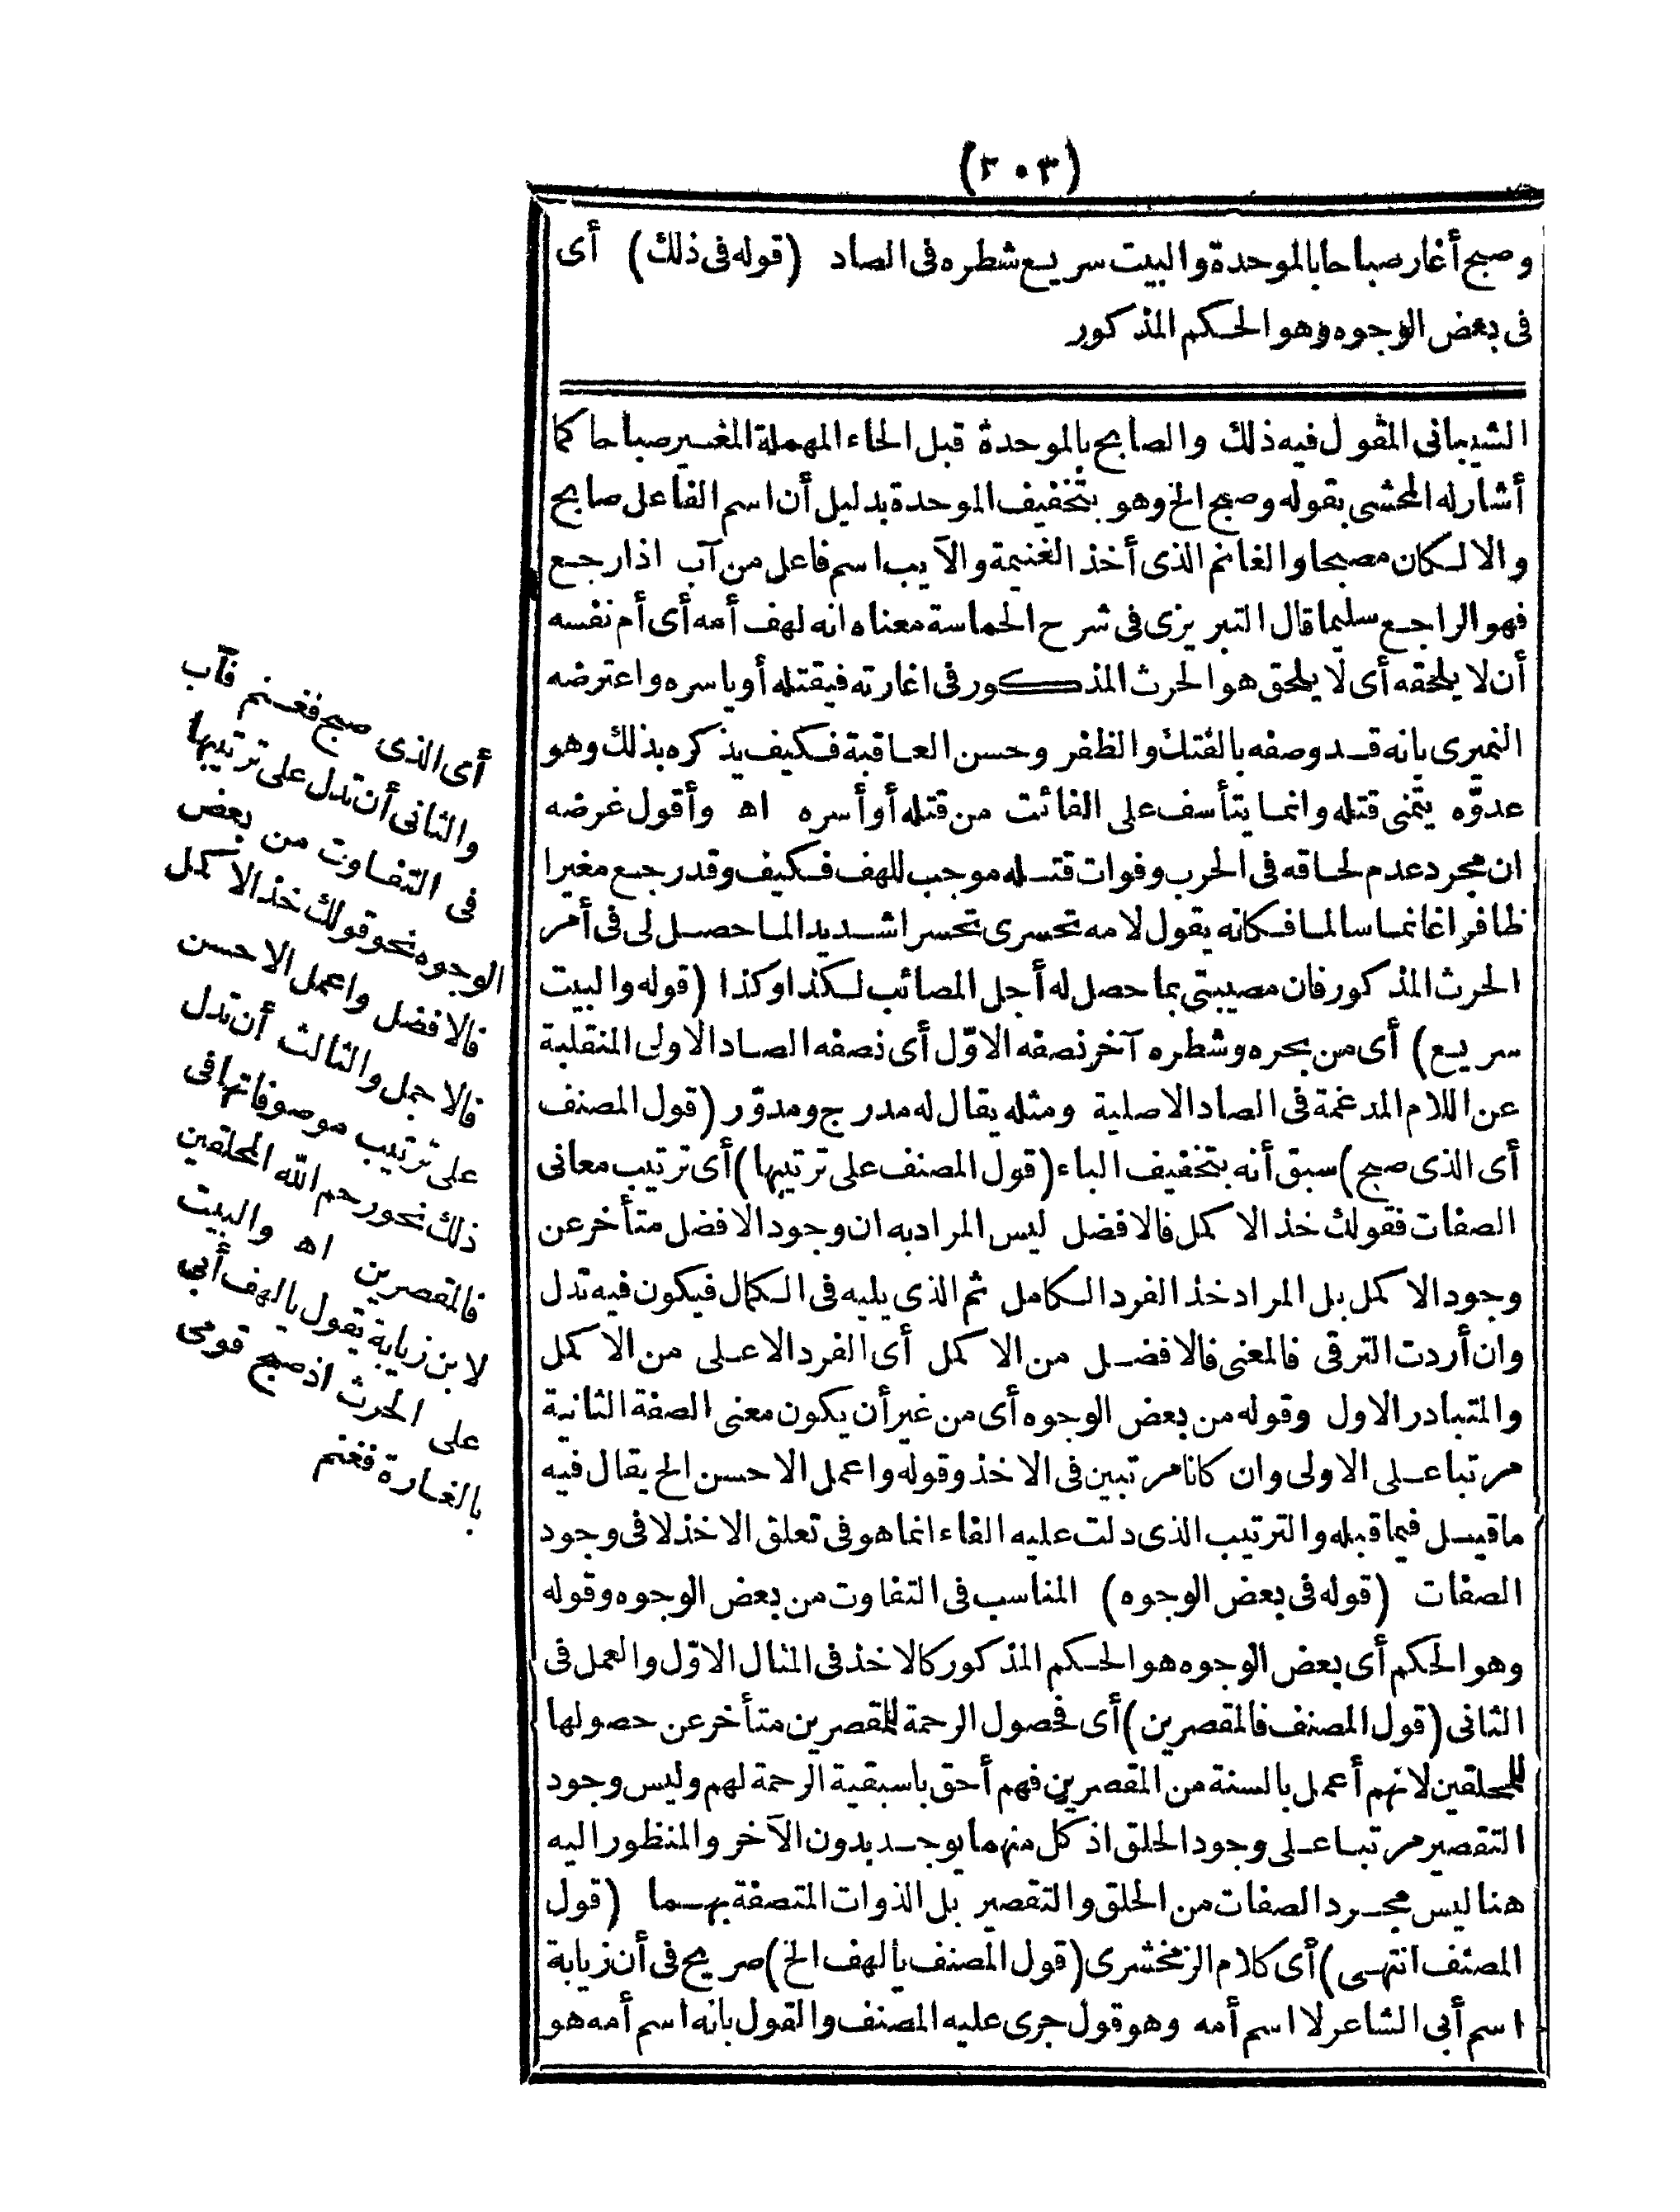 (٢٠٣)
وصبح أغار صباحا بالموحدة والبيت سريع شطره فى الصاد (قوله فى ذلك) أى
فى بعض الوجوه وهو الحكم المذكور
الشيبانى المقول فيه ذلك والصابح بالموحدة قبل الحاء المهملة المغير صباحا كما
أشار له المحشى بقوله وصبح الخ وهو بتخفيف الموحدة بدليل أن اسم الفاعل صابح
والا لكان مصبحا والغانم الذى أخذ الغنيمة والآيب اسم فاعل من آب اذا رجع
فهو الراجع سليما قال التبريزى فى شرح الحماسة معناه انه لهف أمه أى أم نفسه
أن لا يلحقه أى لا يلحق هو الحرث المذكور فى اغارته فيقتله أو ياسره واعترضه
النميرى بانه قد وصفه بالفتك والظفر وحسن العاقبة فكيف يذكره بذلك وهو
عدوّه يتمنى قتله وانما يتأسف على الفائت من قتله أو أسره اه وأقول غرضه
ان مجرد عدم لحاقه فى الحرب وفوات قتله موجب للهف فكيف وقد رجع مغيرا
ظافرا غانما سالما فكانه يقول لامه تحسرى تحسرا شديدا لما حصل لى فى أمر
الحرث المذكور فان مصيبتى بما حصل له أجل المصائب لكذا وكذا (قوله والبيت
سريع) أى من بحره وشطره آخر نصفه الاوّل أى نصفه الصاد الاولى المنقلبة
عن اللام المدغمة فى الصاد الاصلية ومثله يقال له مدرج ومدوّر (قول المصنف
أى الذى صبح) سبق أنه بتخفيف الباء (قول المصنف على ترتيبها) أى ترتيب معانى
الصفات فقولك خذ الاكمل فالافضل ليس المراد به ان وجود الافضل متأخر عن
وجود الاكمل بل المراد خذ الفرد الكامل ثم الذى يليه فى الكمال فيكون فيه تدل
وان أردت الترقى فالمعنى فالافضل من الاكمل أى الفرد الاعلى من الاكمل
والمتبادر الاول وقوله من بعض الوجوه أى من غير أن يكون معنى الصفة الثانية
مرتبا على الاولى وان كانا مرتبين فى الاخذ وقوله واعمل الاحسن الخ يقال فيه
ما قيل فيما قبله والترتيب الذى دلت عليه الفاء انما هو فى تعلق الاخذ لا فى وجود
الصفات (قوله فى بعض الوجوه) المناسب فى التفاوت من بعض الوجوه وقوله
وهو الحكم أى بعض الوجوه هو الحكم المذكور كالاخذ فى المثال الاوّل والعمل فى
الثانى (قول المصنف فالمقصرين) أى فحصول الرحمة للمقصرين متأخر عن حصولها
للمحلقين لانهم أعمل بالسنة من المقصرين فهم أحق باسبقية الرحمة لهم وليس وجود
التقصير مرتبا على وجود الحلق اذ كل منهما يوجد بدون الآخر والمنظور اليه
هنا ليس مجرد الصفات من الحلق والتقصير بل الذوات المتصفة بهما (قول
المصنف انتهى) أى كلام الزمخشرى (قول المصنف يا لهف الخ) صريح فى أن زيابة
اسم أبى الشاعر لا اسم أمه وهو قول جرى عليه المصنف والقول بانه اسم أمه هو
أى الذى صبح فغنم فآب
والثانى أن تدل على ترتيبها
فى التفاوت من بعض
الوجوه نحو قولك خذ الاكمل
فالافضل واعمل الاحسن
فالاجمل والثالث أن تدل
على ترتيب موصوفاتها فى
ذلك نحو رحم الله المحلقين
فالمقصرين اه والبيت
لابن زيابة يقول يا لهف أبى
على الحرث اذ صبح قومى
بالغارة فغنم